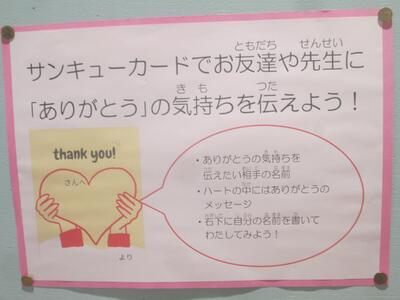 サンキューカードでお友達や先生に
「ありがとう」の気持ちを伝えよう！
thank you!
さんへ
より
・ありがとうの気持ちを
伝えたい相手の名前
・ハートの中にはありがとうの
メッセージ
・右下に自分の名前を書いて
わたしてみよう！